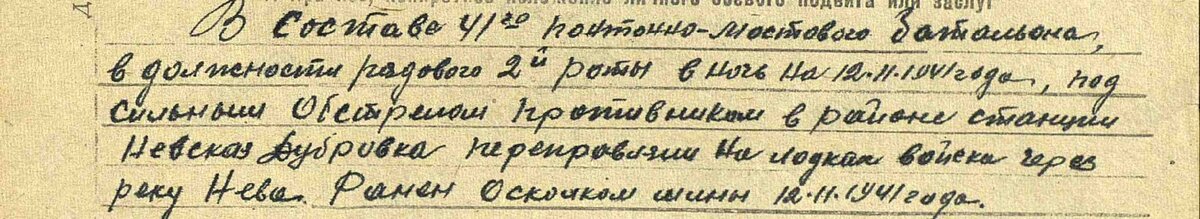 конкретное изложение личного боевого подвига или заслуг
В Состава 41го понтонно-мостового Батальона,
в должности рядового 2й роты в ночь на 12.11.1941 года, под
сильным Обстрелом противником в районе станции
Невская Дубровка переправляли на лодках войска через
реку Нева. Ранен Осколком мины 12.11.1941 года.